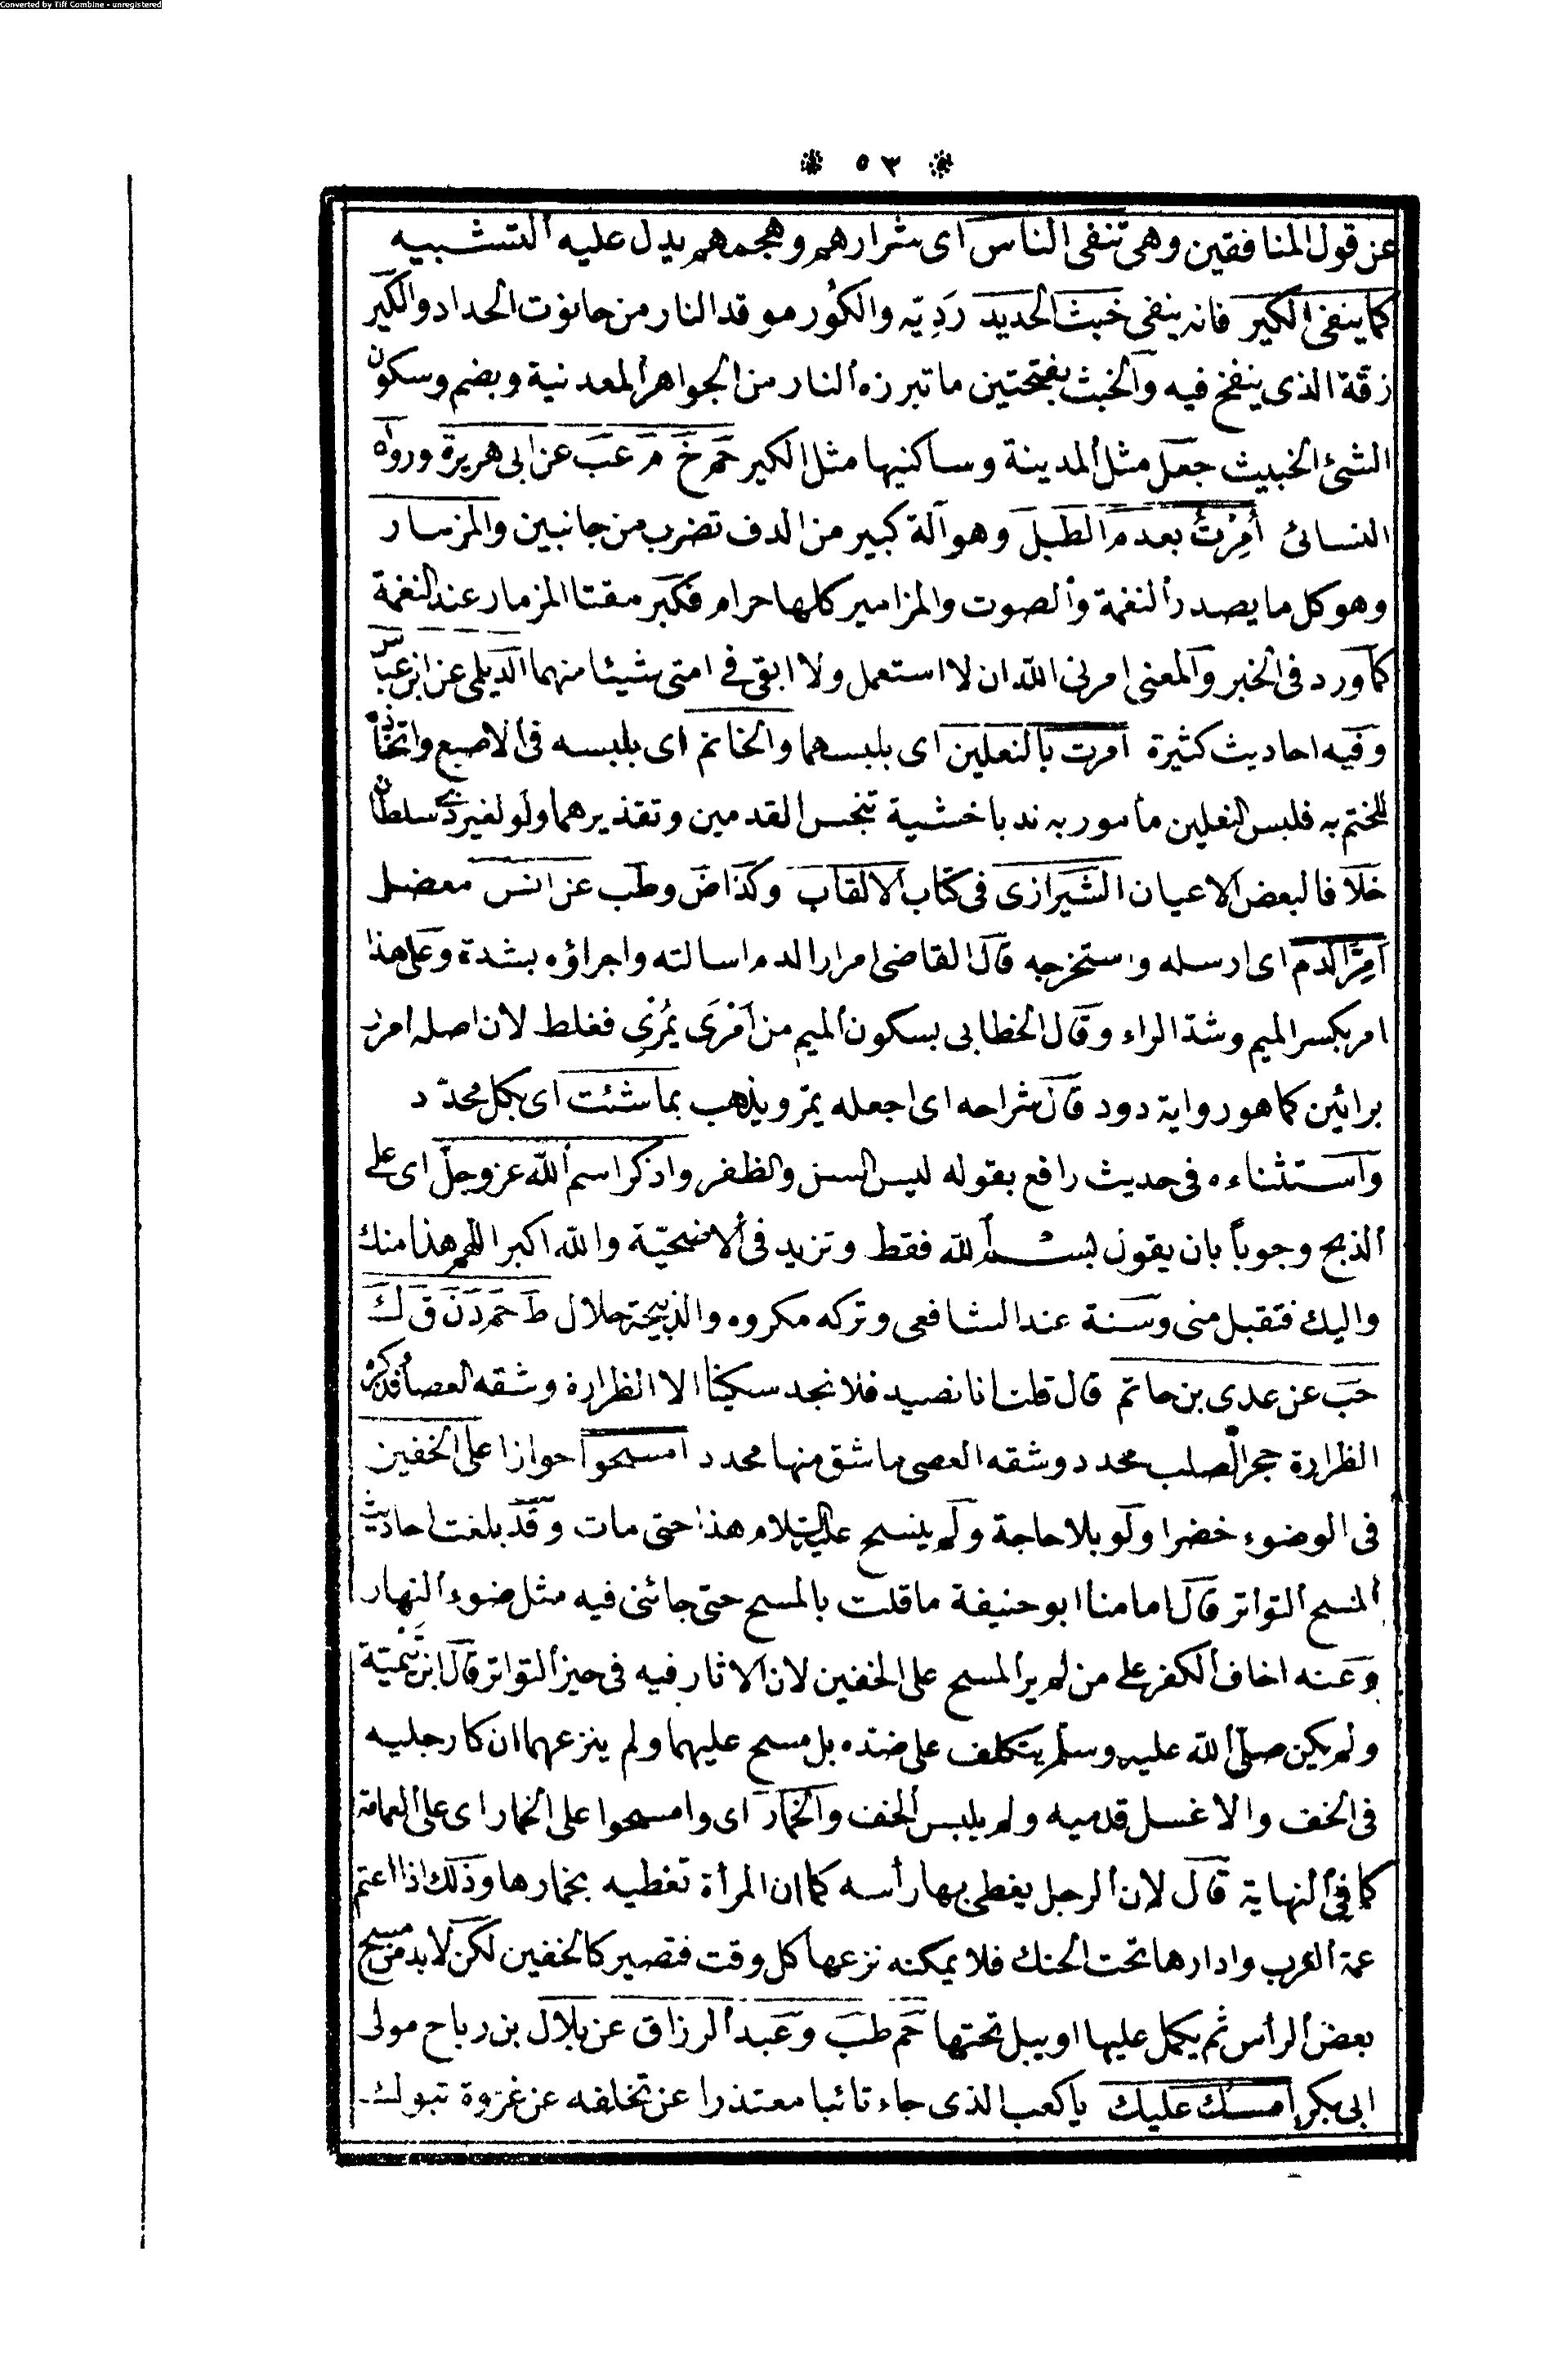 Converted by Tiff Combine - unregistered
٥٣
عن قول المنافقين وهى تنفى الناس اى شرارهم وهجمهم يدل عليه التشبيه
كما ينفى الكير فانه ينفى خبث الحديد رديه والكور موقد النار من حانوت الحداد والكير
زقة الذى ينفخ فيه والخبث بفتحتين ما تبرزه النار من الجواهر المعدنية وبضم وسكون
الشئ الخبيث جعل مثل المدينة وساكنيها مثل الكير حم خ م عب عن ابى هريرة ورواه
النسائى أمرت بعدم الطبل وهو آلة كبير من الدف تضرب من جانبين والمزمار
وهو كل ما يصدر النغمة والصوت والمزامير كلها حرام فكبر مقتا المزمار عند النغمة
كما ورد فى الخبر والمعنى امرنى الله ان لا استعمل ولا ابقى فى امتى شيئا منهما الديلمى عن ابن عباس
وفيه احاديث كثيرة امرت بالنعلين اى بلبسهما والخاتم اى بلبسه فى الاصبع واتخاذه
للختم به فلبس النعلين مأمور به ندبا خشية تنجس القدمين وتقذيرهما ولو لغير ذى سلطان
خلافا لبعض الاعيان الشيرازى فى كتاب الالقاب وكذا ض وطب عن انس معضل
امر الدم اى ارسله واستخرجه قال القاضى امرار الدم اسالته واجراؤه بشدة وعلى هذا
امر بكسر الميم وشد الراء وقال الخطابى بسكون الميم من أمرى يمرى فغلط لان اصله امرر
برائين كما هو رواية دود قال شراحه اى اجعله يمر ويذهب بما شئت اى بكل محدد
واستثناءه فى حديث رافع بقوله ليس السن والظفر واذكر اسم الله عز وجل اى على
الذبح وجوبا بان يقول بسم الله فقط وتزيد فى الاضحية والله اكبر اللهم هذا منك
واليك فتقبل منى وسنة عند الشافعى وتركه مكروه والذبيحة حلال ط حم د ن ق ك
حب عن عدى بن حاتم قال قلت انا نصيد فلا نجد سكينا الا الظرارة وشقه العصا فذكره
الظرارة حجر الصلب محدد وشقه العصى ما شق منها محدد امسحوا جوازا على الخفين
فى الوضوء حضرا ولو بلا حاجة ولم ينسخ عليه السلام هذا حتى مات وقد بلغت احاديث
المسح التواتر قال امامنا ابو حنيفة ما قلت بالمسح حتى جائنى فيه مثل ضوء النهار
وعنه اخاف الكفر على من لم ير المسح على الخفين لان الاثار فيه فى حيز التواتر قال ابن تيمية
ولم يكن صلى الله عليه وسلم يتكلف على ضده بل مسح عليهما ولم ينزعهما ان كا رجليه
فى الخف والا غسل قدميه ولم يلبس الخف والخمار اى وامسحوا على الخمار اى على العمامة
كما فى النهاية قال لان الرجل يغطى بها رأسه كما ان المرأة تغطيه بخمارها وذلك اذا اعتم
عمة العرب وادارها تحت الحنك فلا يمكنه نزعها كل وقت فتصير كالخفين لكن لابد من مسح
بعض الرأس ثم يكمل عليها او يبل تحتها حم طب وعبد الرزاق عن بلال بن رباح مولى
ابى بكر امسك عليك يا كعب الذى جاء تائبا معتذرا عن تخلفه عن غزوة تبوك